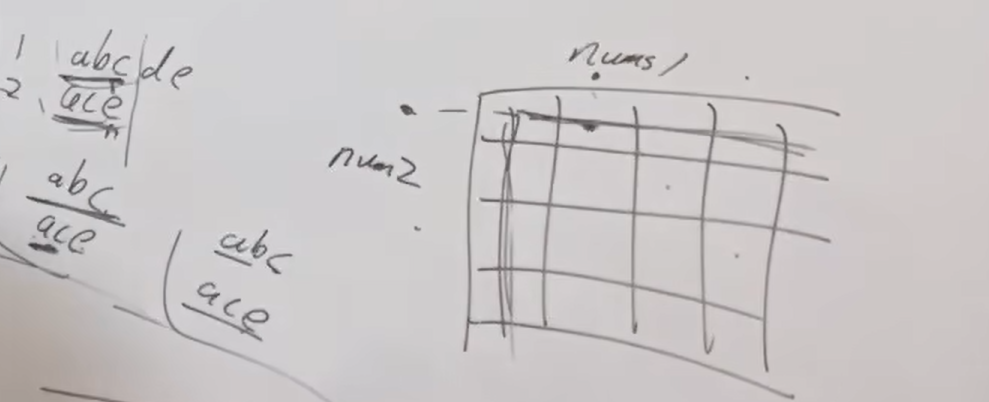 1 abc|de
2 ace
abc
ace
abc
ace
nums1
num2